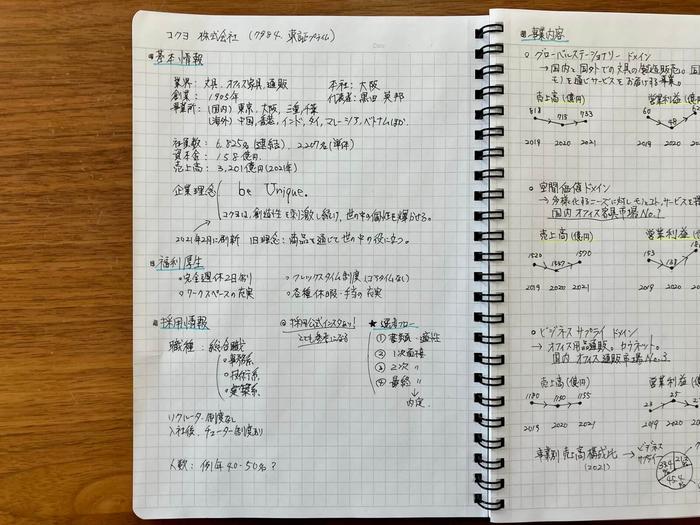 コクヨ 株式会社 (7984. 東証プライム)
Date
基本情報
業界: 文具. オフィス家具. 通販
本社: 大阪
創業: 1905年
代表者: 黒田 英邦
事業所: (国内) 東京, 大阪, 三重, 千葉
(海外) 中国, 香港, インド, タイ, マレーシア, ベトナム ほか.
社員数: 6,825名 (連結). 2,207名 (単体)
資本金: 158億円.
売上高: 3,201億円 (2021年)
企業理念 be Unique.
コクヨは, 創造性を刺激し続け, 世の中の個性を輝かせる.
2021年2月に刷新 旧理念: 商品を通じて世の中の役に立つ.
福利厚生
・完全週休2日制
・フレックスタイム制度 (コアタイムなし)
・ワークスペースの充実
・各種休暇・手当の充実
採用情報
職種: 総合職
・事務系
・技術系
・実築系
◎採用公式インスタあり!
とても参考になる
★ 選考フロー
① 書類・適性
② 1次面接
③ 2次 〃
④ 最終 〃
内定.
リクルーター制度なし
入社後, チューター制度あり
人数: 例年40-50名?
事業内容
○ グローバルステーショナリー ドメイン
→ 国内と国外での文具の製造販売. 国
モノを通じサービスをお届けする事業.
売上高 (億円)
営業利益 (億
618 718 753
60 48
2019 2020 2021
2019 2020
○ 空間価値ドメイン
→ 多様化するニーズに対しモノ, コト, サービスを
国内 オフィス家具市場 No.1
売上高 (億円)
営業利益 (億
1520 1387 1570
153 123
2019 2020 2021
2019 2020
○ ビジネス サプライ ドメイン
→ オフィス用品通販. カウネット.
国内 オフィス通販市場 No.3.
売上高 (億円)
営業利益 (
1180 1150 1155
23 25
2019 2020 2021
2019 2020
事業別 売上高 構成比
(2021)
→ ビジネス
サプライ
33.4
45.4